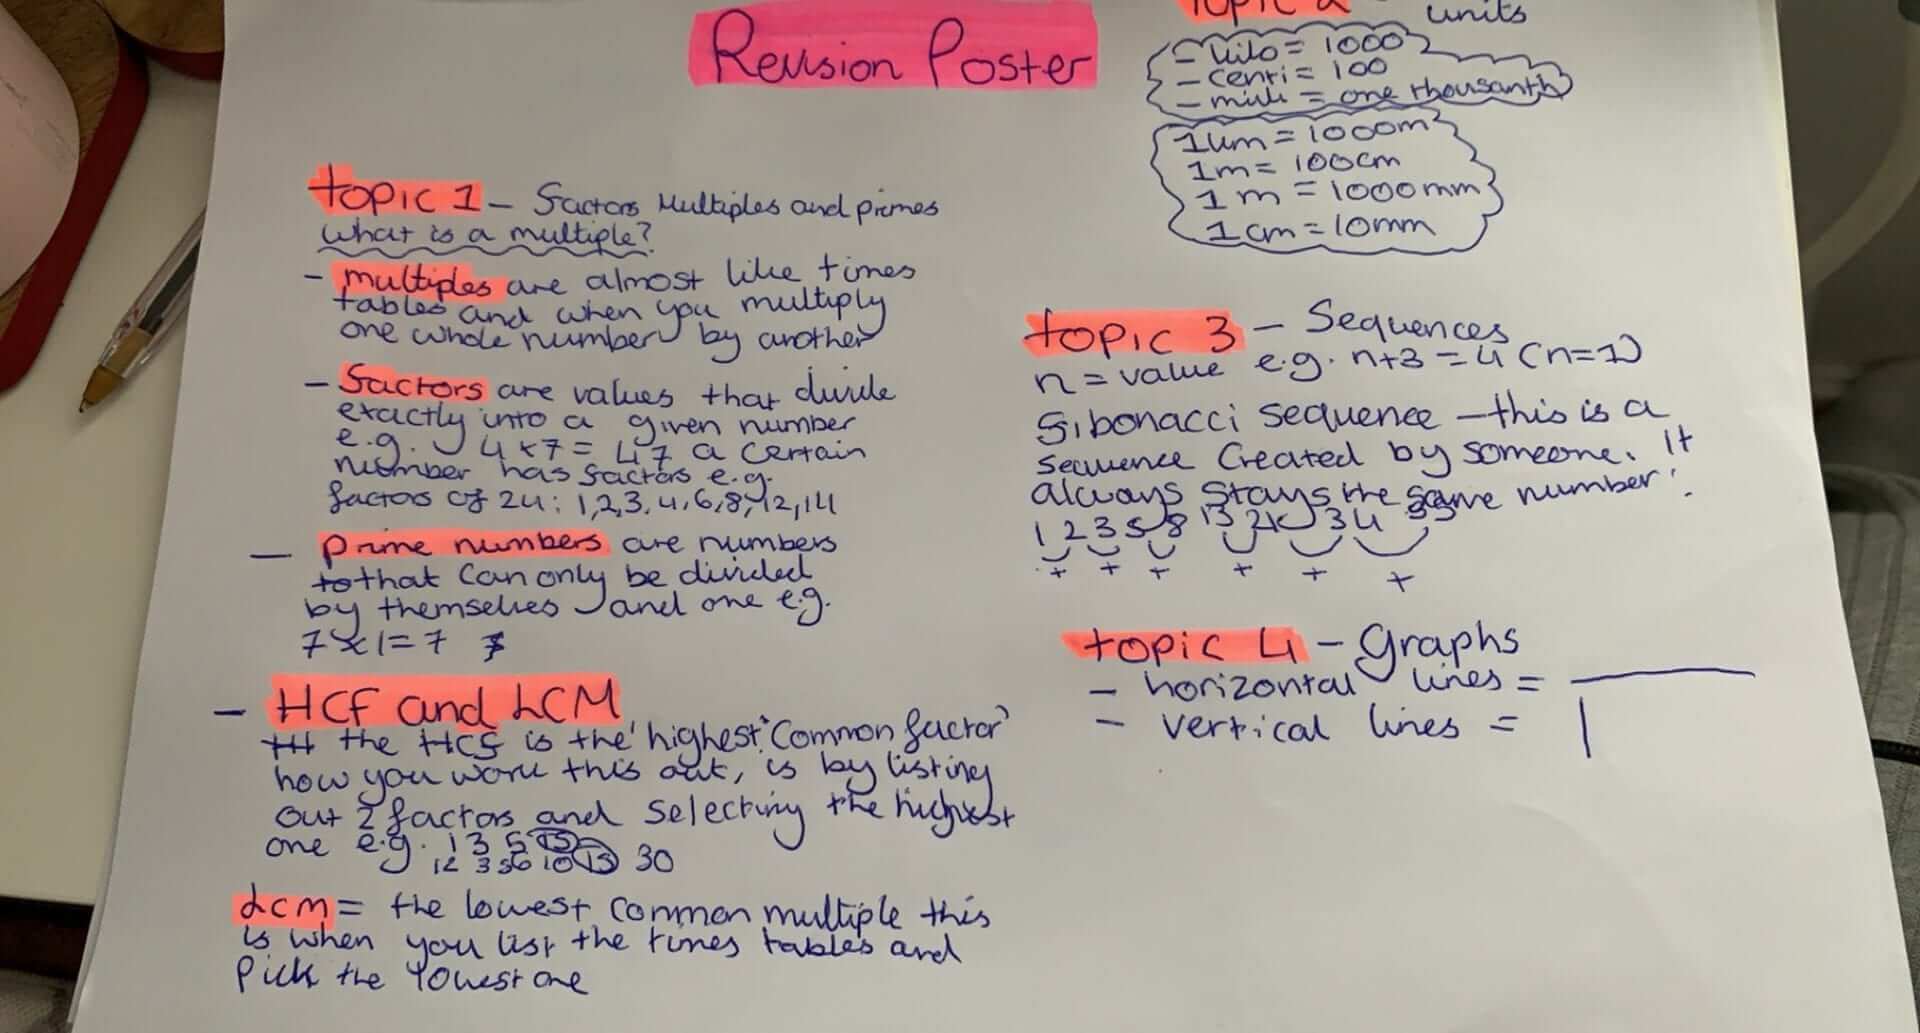 Revision Poster
topic 1 - factors Multiples and primes
What is a multiple?
- multiples are almost like times
tables and when you multiply
one whole number by another
- factors are values that divide
exactly into a given number
e.g. 4 x 7 = 47 a certain
number has factors e.g.
factors of 24: 1,2,3,4,6,8,12,14
- prime numbers are numbers
to that can only be divided
by themselves and one e.g.
7 x 1 = 7
- HCF and LCM
the HCF is the 'highest common factor'
how you work this out, is by listing
out 2 factors and selecting the highest
one e.g. 1 3 5 15
1 2 3 5 6 10 15 30
LCM = the lowest common multiple this
is when you list the times tables and
pick the lowest one
topic 2 units
- kilo = 1000
- centi = 100
- milli = one thousanth
1km = 1000m
1m = 100cm
1m = 1000mm
1cm = 10mm
topic 3 - Sequences
n = value e.g. n+3 = 4 (n=1)
fibonacci sequence - this is a
sequence created by someone. it
always stays the same number:
1 2 3 5 8 13 21 34 55
+ + + + + +
topic 4 - Graphs
- horizontal lines =
- vertical lines =